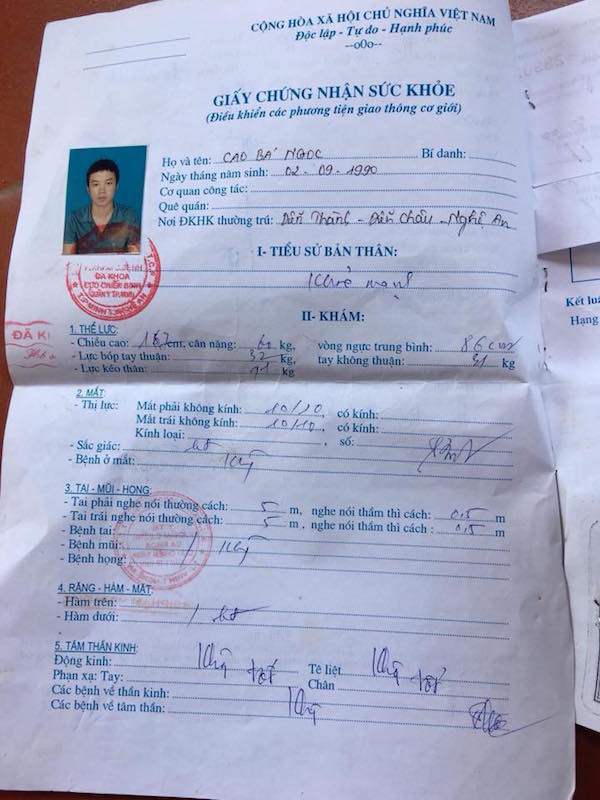 CỘNG HÒA XÃ HỘI CHỦ NGHĨA VIỆT NAM
Độc lập - Tự do - Hạnh phúc
--o0o--
GIẤY CHỨNG NHẬN SỨC KHỎE
(Điều khiển các phương tiện giao thông cơ giới)
Họ và tên: CAO BÁ NGỌC Bí danh:
Ngày tháng năm sinh: 02-09-1990
Cơ quan công tác:
Quê quán:
Nơi ĐKHK thường trú: Diễn Thành - Diễn Châu - Nghệ An
I- TIỂU SỬ BẢN THÂN:
Khỏe mạnh
ĐA KHOA
II- KHÁM:
1. THỂ LỰC:
- Chiều cao: 167 cm, cân nặng: 60 kg, vòng ngực trung bình: 86 cm
- Lực bóp tay thuận: 32 kg, tay không thuận: 31 kg
- Lực kéo thân: kg
2. MẮT:
- Thị lực: Mắt phải không kính: 10/10, có kính:
Mắt trái không kính: 10/10, có kính:
Kính loại: , số:
- Sắc giác: bt
- Bệnh ở mắt: Không
3. TAI - MŨI - HỌNG:
- Tai phải nghe nói thường cách: 5 m, nghe nói thầm thì cách: 0,5 m
- Tai trái nghe nói thường cách: 5 m, nghe nói thầm thì cách: 0,5 m
- Bệnh tai:
- Bệnh mũi: Không
- Bệnh họng:
4. RĂNG - HÀM - MẶT:
- Hàm trên:
- Hàm dưới: bt
5. TÂM THẦN KINH:
Động kinh: Không Tê liệt Không
Phản xạ: Tay: tốt Chân tốt
Các bệnh về thần kinh: Không
Các bệnh về tâm thần:
Kết luậ
Hạng